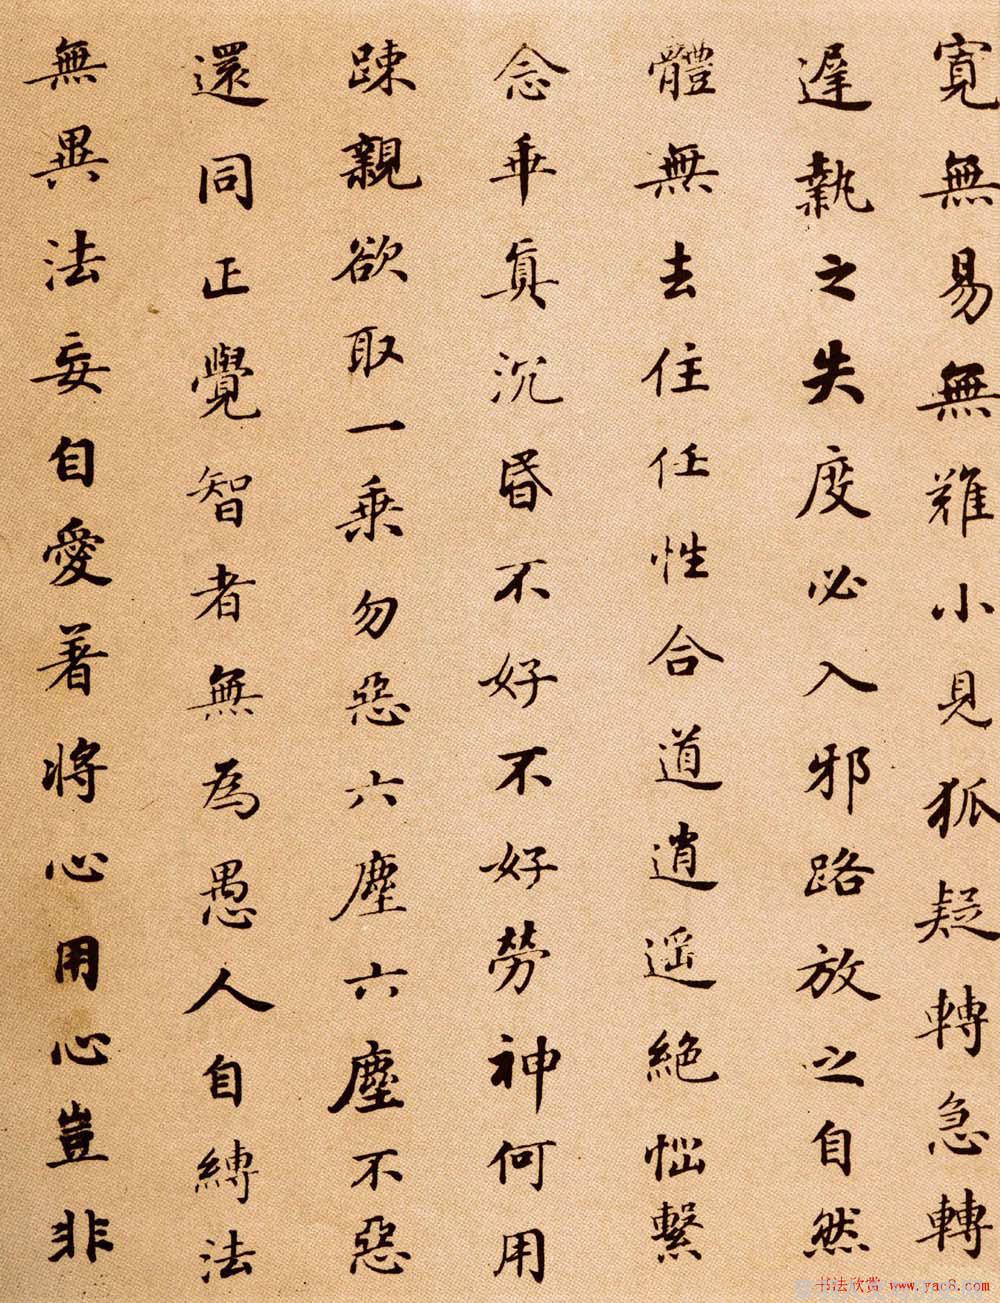 寬無易無難小見狐疑轉急轉
遲執之失度必入邪路放之自然
體無去住任性合道逍遥絶惱繫
念乖真沉昏不好不好勞神何用
踈親欲取一乗勿惡六塵六塵不惡
還同正覺智者無為愚人自縛法
無異法妄自愛著將心用心豈非
书法欣赏 www.yac8.com